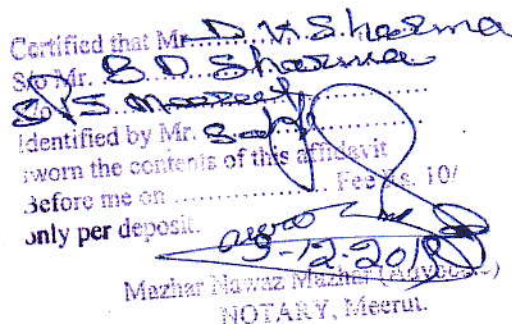 Certified that Mr. D. V. Sharma
S/o Mr. S D Sharma
Identified by Mr. Self
sworn the contents of this affidavit
Before me on .................. Fee Rs. 10/
only per deposit.
-12-2018
Mazhar Nawaz Mazhar (Advocate)
NOTARY, Meerut.